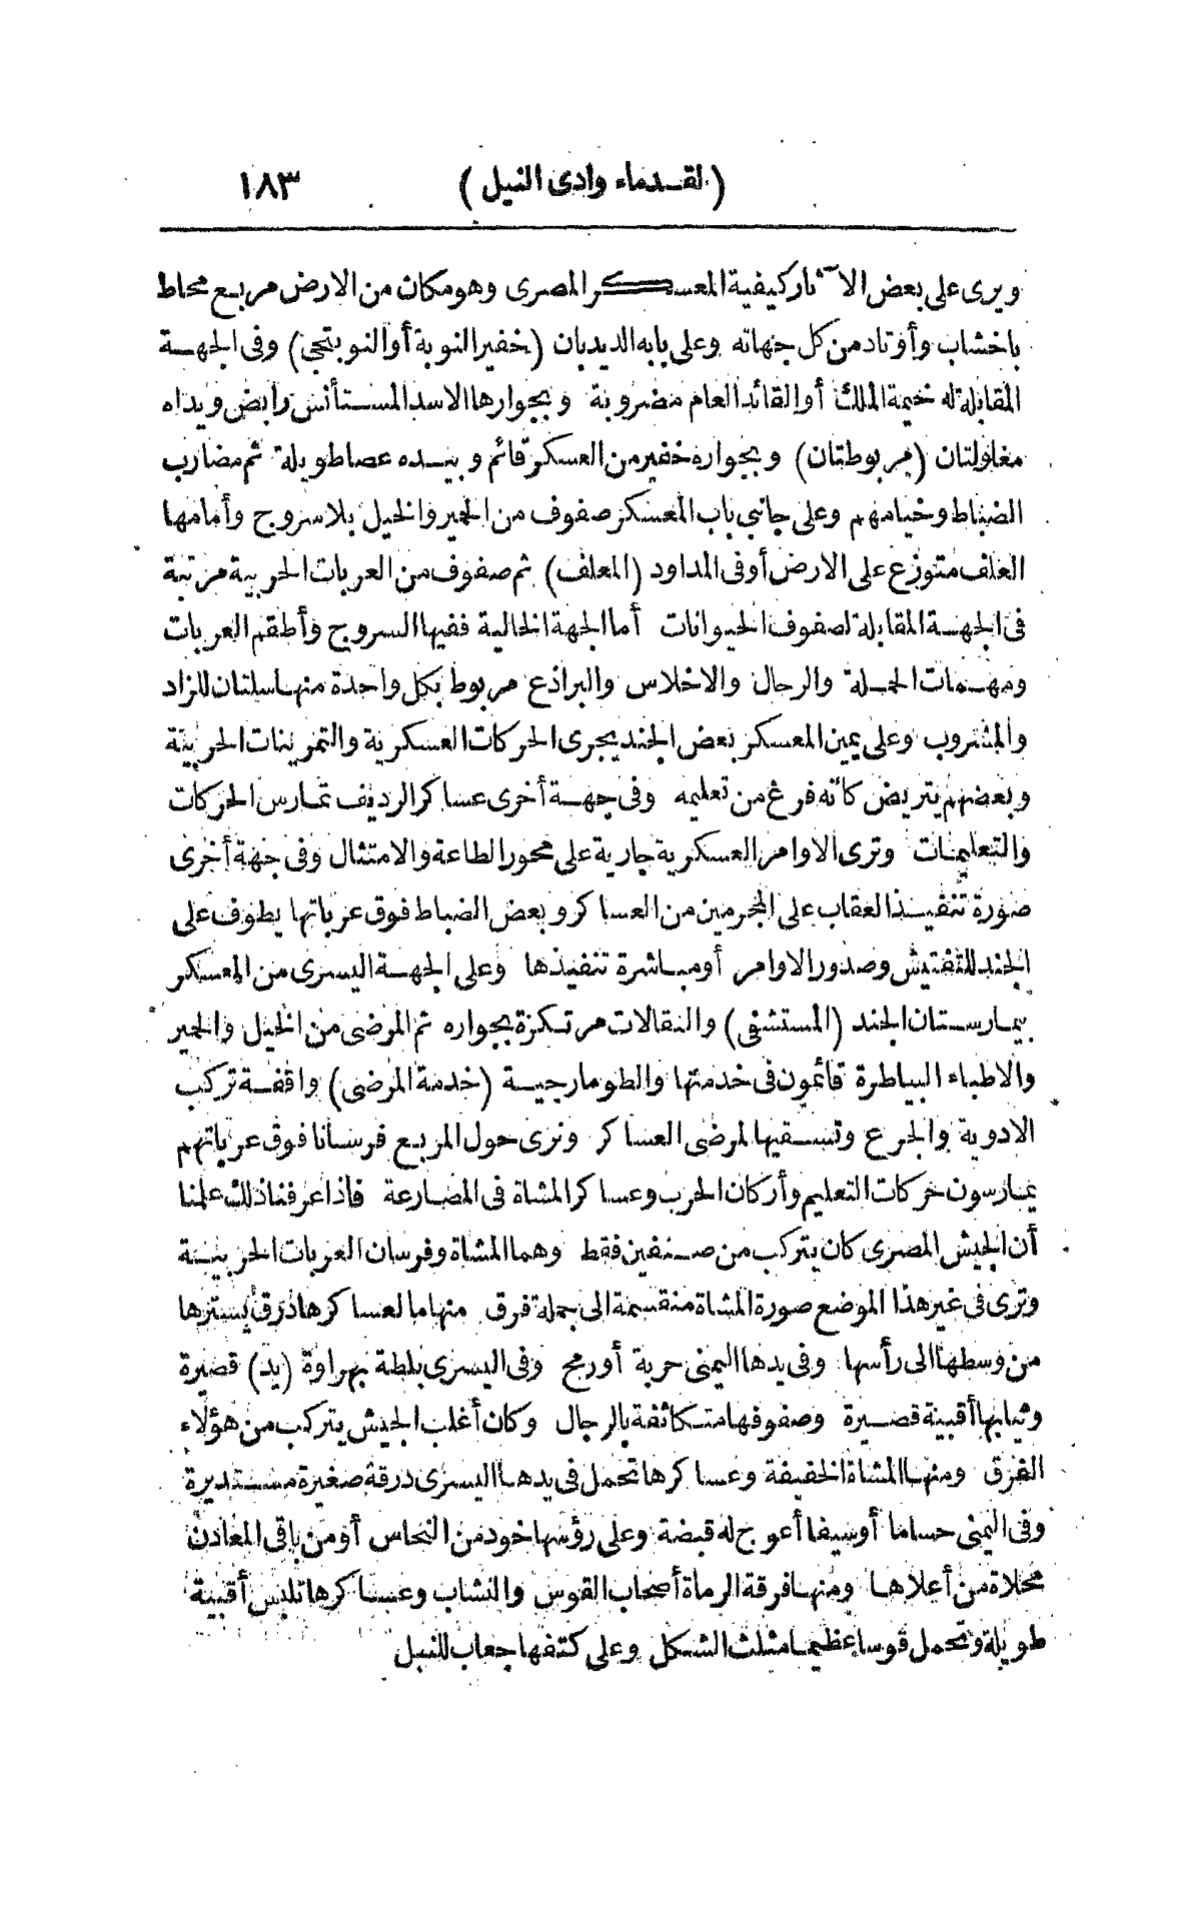 (لقدماء وادى النيل) ١٨٣
ويرى على بعض الآثار كيفية المعسكر المصرى وهو مكان من الارض مربع محاط
باخشاب وأوتاد من كل جهاته وعلى بابه الديدبان (خفير النوبة أو النوبتجى) وفى الجهة
المقابلة له خيمة الملك أو القائد العام مضروبة وبجوارها الاسد المستأنس رابض ويداه
مغلولتان (مربوطتان) وبجواره خفير من العسكر قائم وبيده عصا طويلة ثم مضارب
الضباط وخيامهم وعلى جانبي باب المعسكر صفوف من الحمير والخيل بلا سروج وأمامها
العلف متوزع على الارض أو فى المداود (المعلف) ثم صفوف من العربات الحربية مرتبة
فى الجهة المقابلة لصفوف الحيوانات أما الجهة الخالية ففيها السروج وأطقم العربات
ومهمات الحملة والرحال والاخلاس والبراذع مربوط بكل واحدة منها سلتان للزاد
والمشروب وعلى يمين المعسكر بعض الجند يجرى الحركات العسكرية والتمرينات الحربية
وبعضهم يتريض كأنه فرغ من تعليمه وفى جهة أخرى عساكر الرديف تمارس الحركات
والتعليمات وترى الاوامر العسكرية جارية على محور الطاعة والامتثال وفى جهة أخرى
صورة تنفيذ العقاب على المجرمين من العساكر وبعض الضباط فوق عرباتها يطوف على
الجند للتفتيش وصدور الاوامر أو مباشرة تنفيذها وعلى الجهة اليسرى من المعسكر
بيمارستان الجند (المستشفى) والنقالات مرتكزة بجواره ثم المرضى من الخيل والحمير
والاطباء البياطرة قائمون فى خدمتها والطومارجية (خدمة المرضى) واقفة تركب
الادوية والجرع وتسقيها لمرضى العساكر ونرى حول المربع فرسانا فوق عرباتهم
يمارسون حركات التعليم وأركان الحرب وعساكر المشاة فى المصارعة فاذا عرفنا ذلك علمنا
أن الجيش المصرى كان يتركب من صنفين فقط وهما المشاة وفرسان العربات الحربية
وترى فى غير هذا الموضع صورة المشاة منقسمة الى جملة فرق منها ما لعساكرها درق يسترها
من وسطها الى رأسها وفى يدها اليمنى حربة أو رمح وفى اليسرى بلطة بهراوة (يد) قصيرة
وثيابها أقبية قصيرة وصفوفها متكاثفة بالرجال وكان أغلب الجيش يتركب من هؤلاء
الفرق ومنها المشاة الخفيفة وعساكرها تحمل فى يدها اليسرى درقة صغيرة مستديرة
وفى اليمنى حساما أو سيفا أعوج له قبضة وعلى رؤسها خود من النحاس أو من باقى المعادن
محلاة من أعلاها ومنها فرقة الرماة أصحاب القوس والنشاب وعساكرها تلبس أقبية
طويلة وتحمل قوسا عظيما مثلث الشكل وعلى كتفها جعاب للنبل